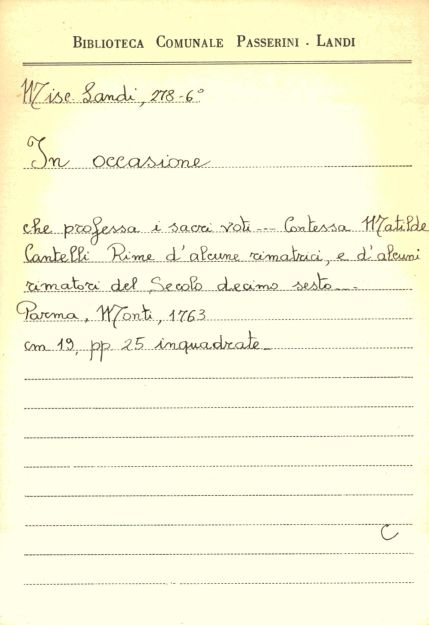 BIBLIOTECA COMUNALE PASSERINI - LANDI
Misc Landi, 278-6°
In occasione
che professa i sacri voti --- Contessa Matilde
Cantelli Rime d'alcune rimatrici, e d'alcuni
rimatori del Secolo decimo sesto ---
Parma, Monti, 1763
cm 19, pp 25 inquadrate -
C